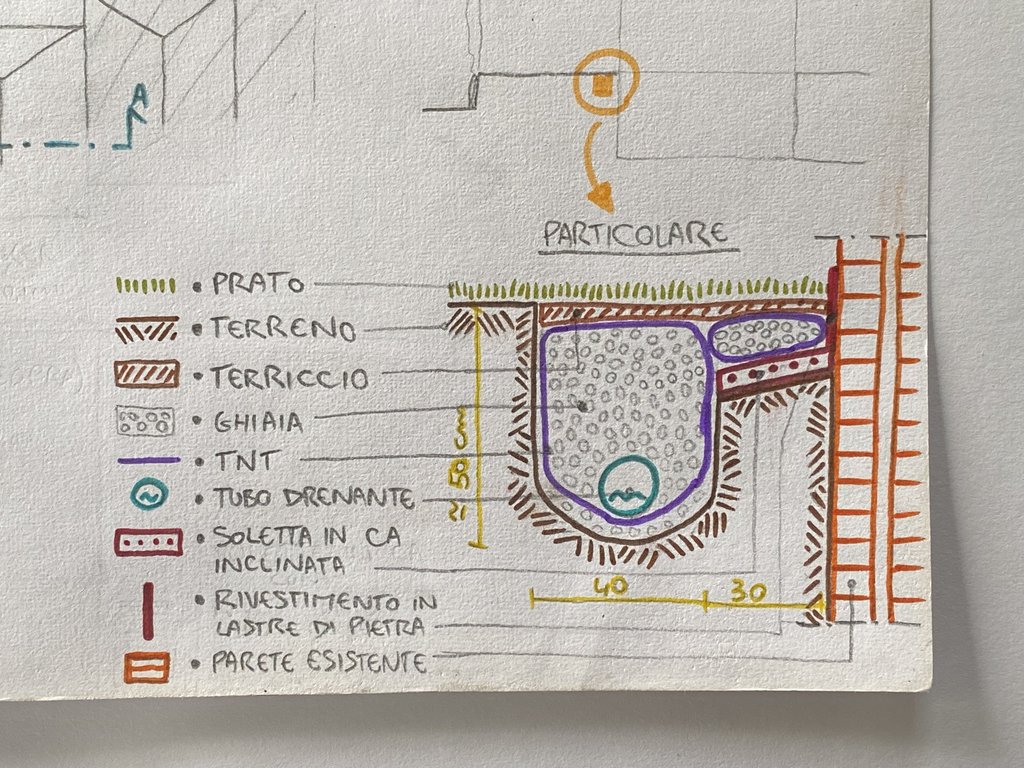 A
PARTICOLARE
• PRATO
• TERRENO
• TERRICCIO
• GHIAIA
• TNT
• TUBO DRENANTE
• SOLETTA IN CA
INCLINATA
• RIVESTIMENTO IN
LASTRE DI PIETRA
• PARETE ESISTENTE
≃ 50 cm
40
30